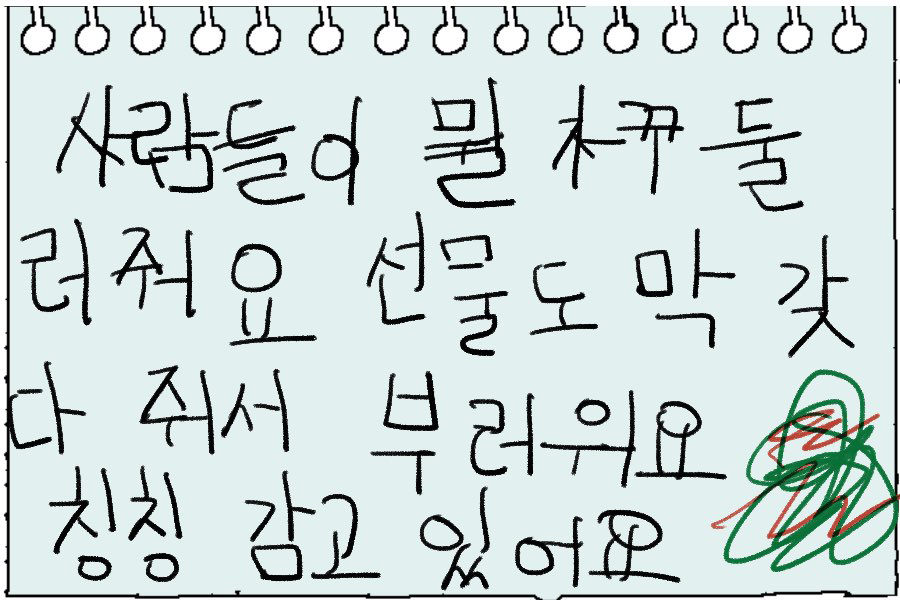 사람들이 뭘 차꾸 둘
러줘요 선물도 막 갖
다 줘서 부러워요
칭칭 감고 있어요